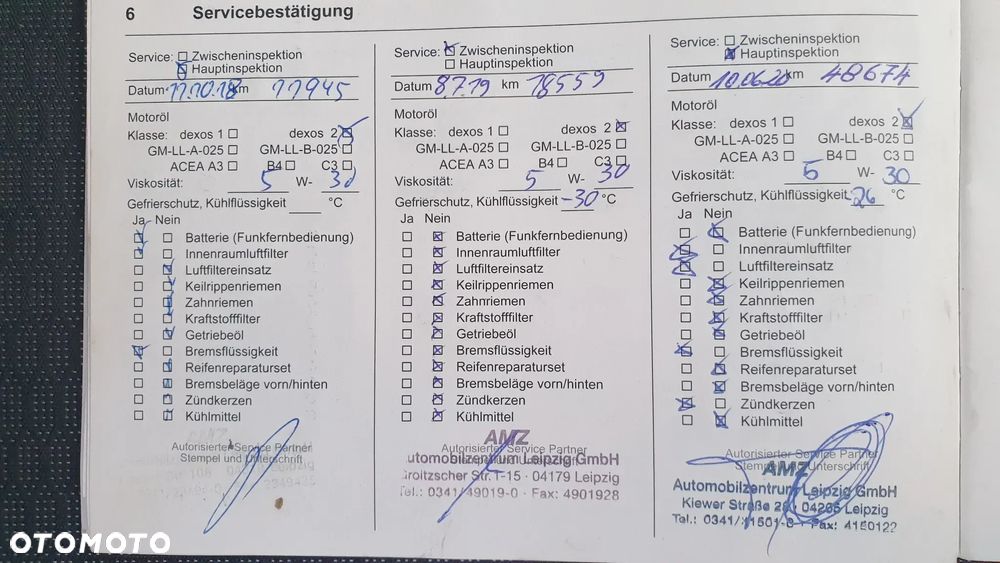 6 Servicebestätigung
Service: Zwischeninspektion
Hauptinspektion
Datum 11.10.18 km 11945
Motoröl
Klasse: dexos 1 dexos 2
GM-LL-A-025 GM-LL-B-025
ACEA A3 B4 C3
Viskosität: 5 W- 30
Gefrierschutz, Kühlflüssigkeit °C
Ja Nein
Batterie (Funkfernbedienung)
Innenraumluftfilter
Luftfiltereinsatz
Keilrippenriemen
Zahnriemen
Kraftstofffilter
Getriebeöl
Bremsflüssigkeit
Reifenreparaturset
Bremsbeläge vorn/hinten
Zündkerzen
Kühlmittel
AMZ
Autorisierter Service Partner
Stempel und Unterschrift
Service: Zwischeninspektion
Hauptinspektion
Datum 8.7.19 km 18559
Motoröl
Klasse: dexos 1 dexos 2
GM-LL-A-025 GM-LL-B-025
ACEA A3 B4 C3
Viskosität: 5 W- 30
Gefrierschutz, Kühlflüssigkeit -30 °C
Ja Nein
Batterie (Funkfernbedienung)
Innenraumluftfilter
Luftfiltereinsatz
Keilrippenriemen
Zahnriemen
Kraftstofffilter
Getriebeöl
Bremsflüssigkeit
Reifenreparaturset
Bremsbeläge vorn/hinten
Zündkerzen
Kühlmittel
AMZ
Autorisierter Service Partner
utomobilzentrum Leipzig GmbH
roitzscher Str. 1-15 · 04179 Leipzig
Tel.: 0341/49019-0 · Fax: 4901928
Service: Zwischeninspektion
Hauptinspektion
Datum 10.06.20 km 48674
Motoröl
Klasse: dexos 1 dexos 2
GM-LL-A-025 GM-LL-B-025
ACEA A3 B4 C3
Viskosität: 5 W- 30
Gefrierschutz, Kühlflüssigkeit -26 °C
Ja Nein
Batterie (Funkfernbedienung)
Innenraumluftfilter
Luftfiltereinsatz
Keilrippenriemen
Zahnriemen
Kraftstofffilter
Getriebeöl
Bremsflüssigkeit
Reifenreparaturset
Bremsbeläge vorn/hinten
Zündkerzen
Kühlmittel
Autorisierter Service Partner
Stempel und Unterschrift
AMZ
Automobilzentrum Leipzig GmbH
Kiewer Straße 04205 Leipzig
Tel.: Fax: 4150122
OTOMOTO